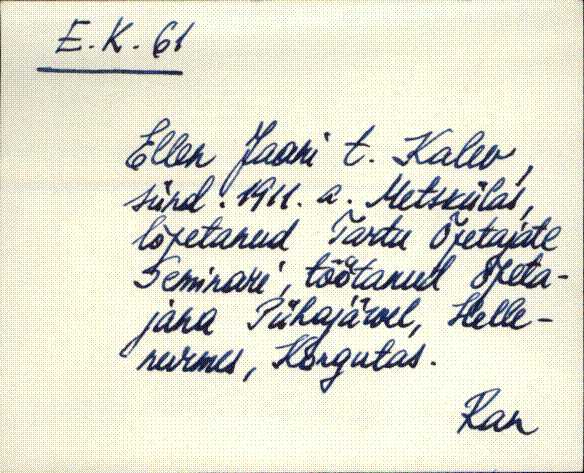 E.K. 61
Ellen Jaani t. Kalev,
sünd. 1911. a. Metskülas,
lõpetanud Tartu Õpetajate
Seminari, töötanud õpeta-
jana Pühajärvel, Helle-
nurmes, Korgutas.
Ran